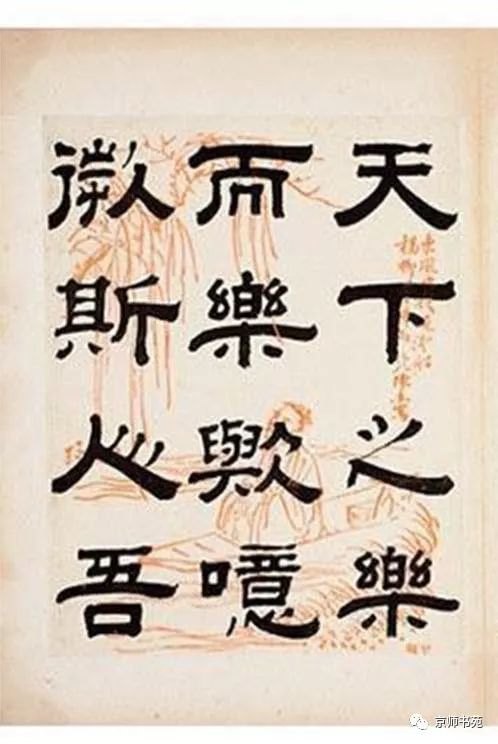 天下之樂
而樂歟噫
微斯人吾
京师书苑